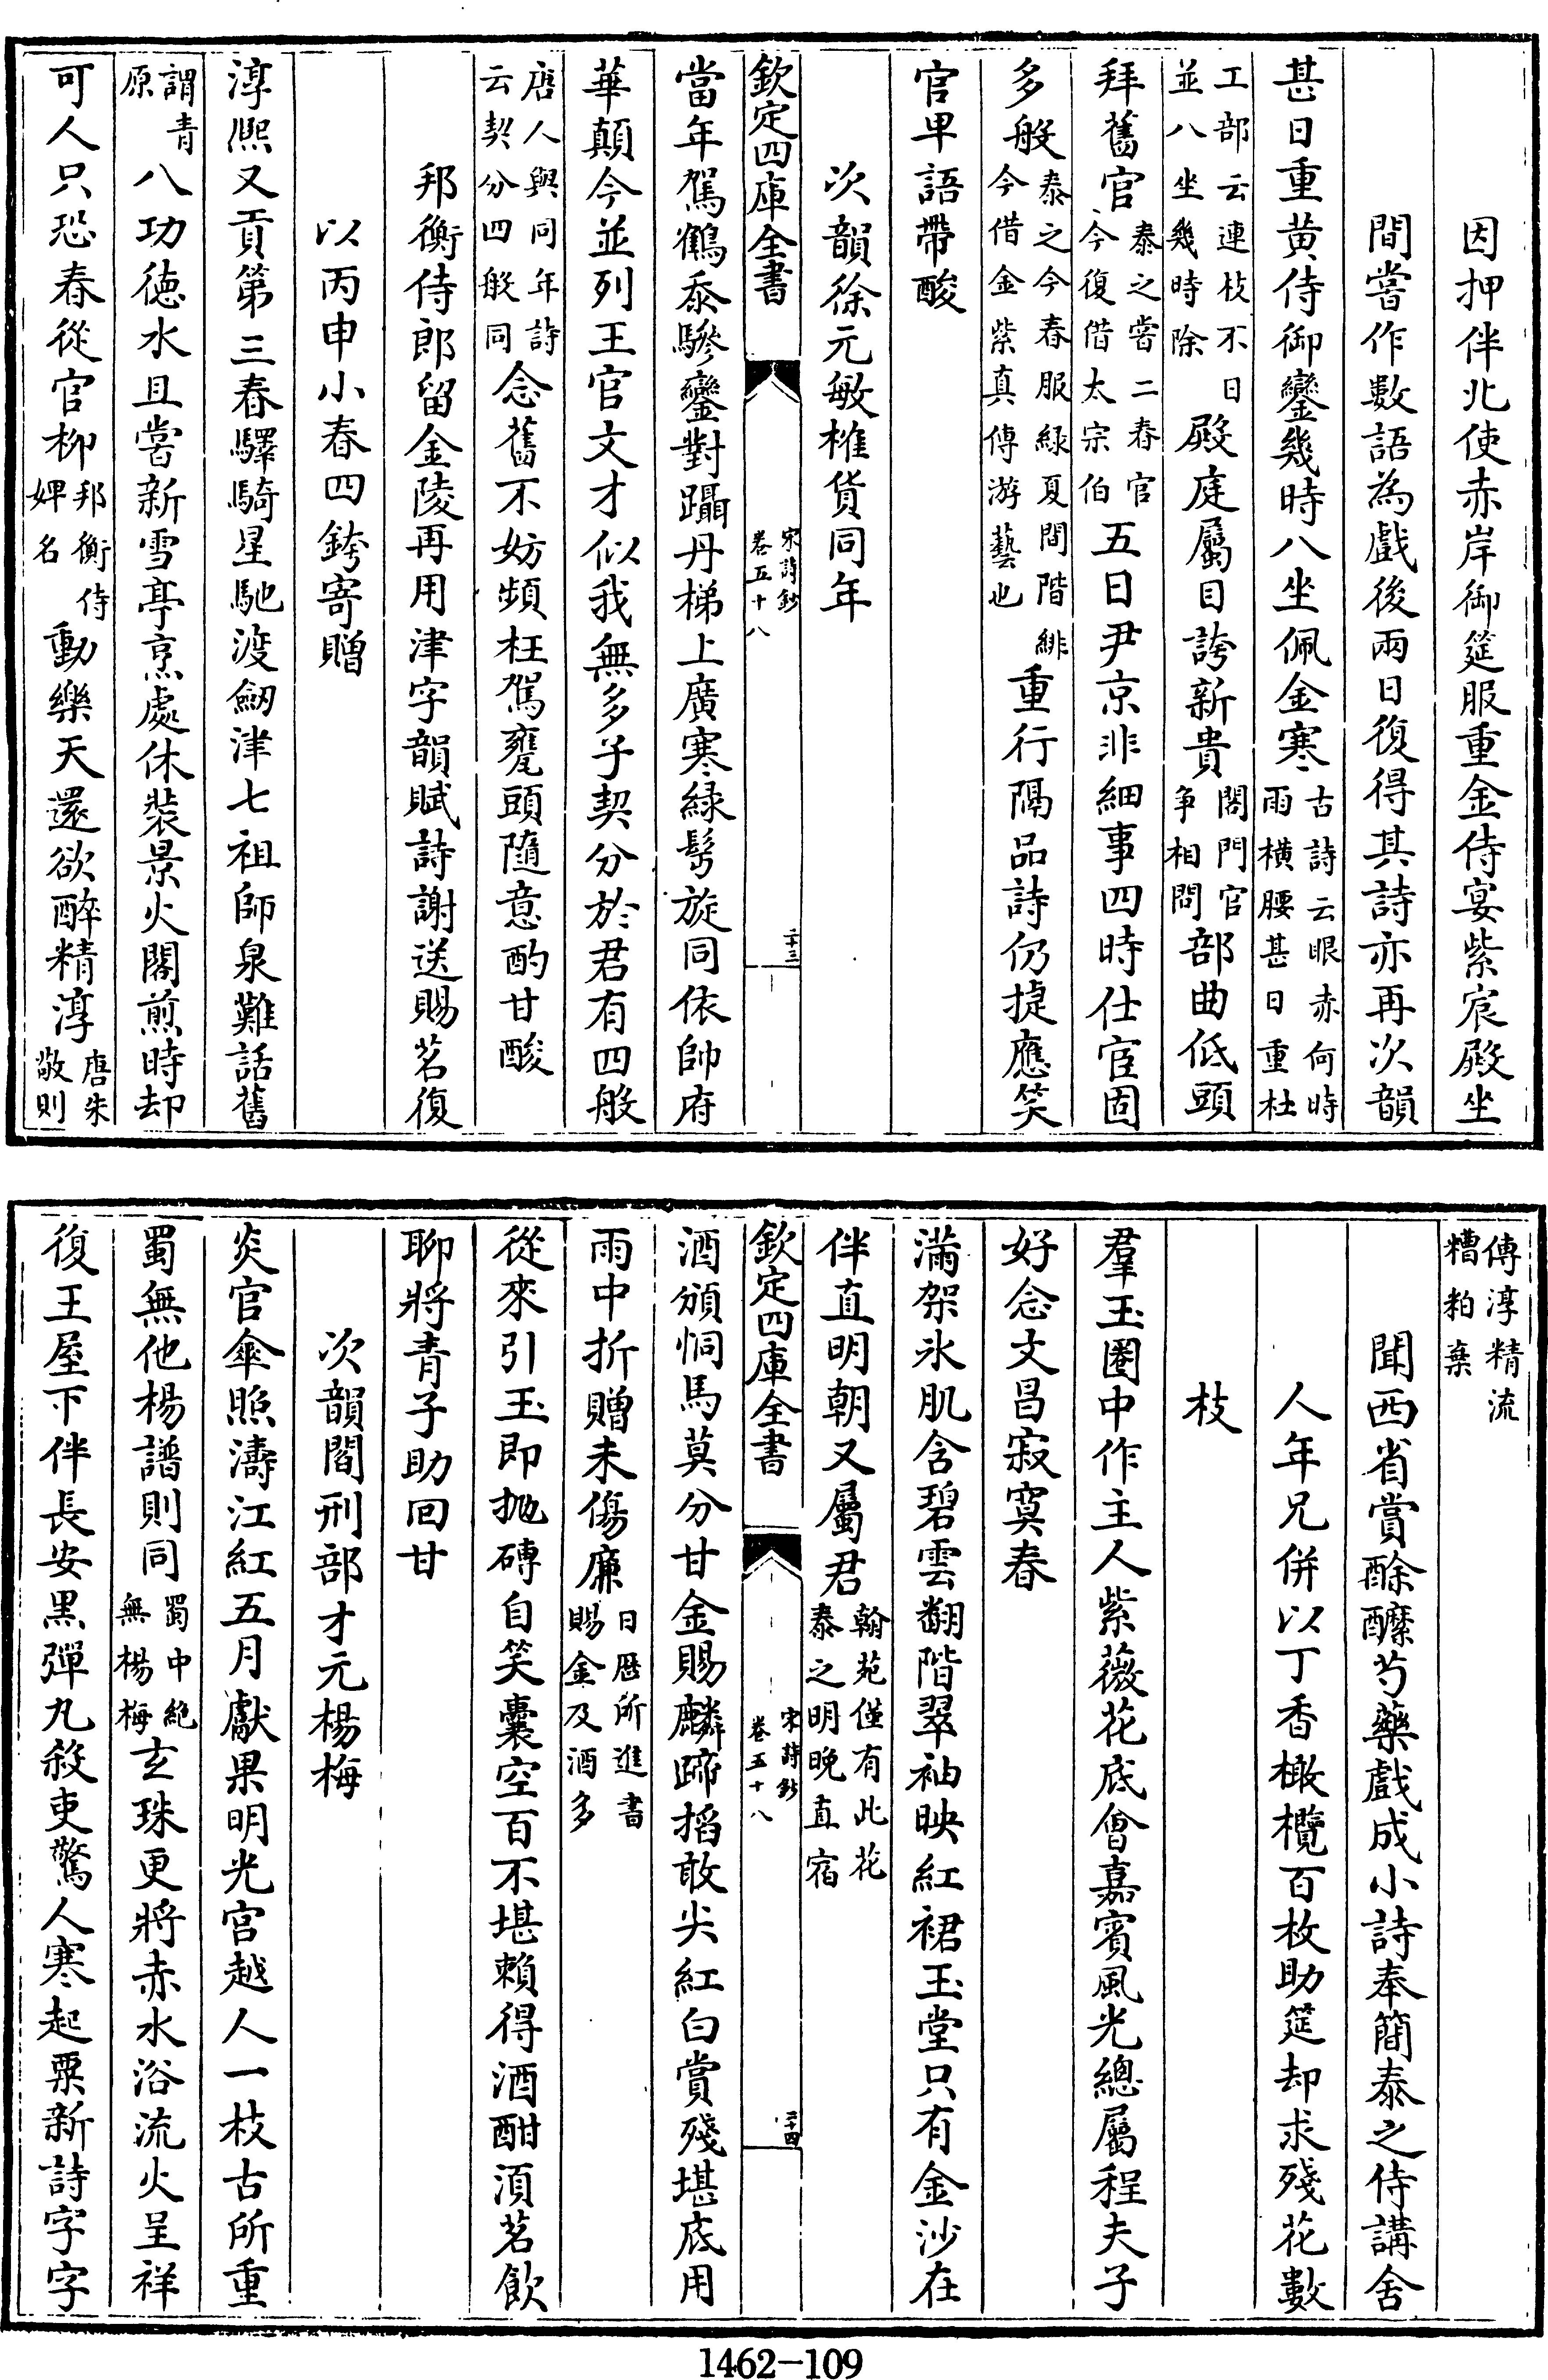 因押伴北使赤岸御筵服重金侍宴紫宸殿坐
間嘗作數語為戲後兩日復得其詩亦再次韻
甚日重黄侍御鑾幾時八坐佩金寒古詩云眼赤何時雨橫腰甚日重杜
工部云連枝不日並八坐幾時除殿庭屬目誇新貴閤門官争相問部曲低頭
拜舊官泰之嘗二春官今復偕太宗伯五日尹京非細事四時仕宦固
多般泰之今春服緑夏間階緋今借金紫真傳游藝也重行隔品詩仍捷應笑
官卑語帶酸
次韻徐元敏榷貨同年
欽定四庫全書 宋詩鈔 卷五十八 二十三
當年駕鶴忝驂鑾對躡丹梯上廣寒緑髩旋同依帥府
華顛今並列王官文才似我無多子契分於君有四般
唐人與同年詩云契分四般同念舊不妨頻枉駕甕頭隨意酌甘酸
邦衡侍郎留金陵再用津字韻賦詩謝送賜茗復
以丙申小春四銙寄贈
淳熈又貢第三春驛騎星馳渡劒津七祖師泉難話舊
謂青原八功徳水且嘗新雪亭烹處休裝景火閣煎時却
可人只恐春從官柳邦衡侍婢名動樂天還欲醉精淳唐朱敬則
傳淳精流糟粕棄
聞西省賞酴醾芍藥戲成小詩奉簡泰之侍講舍
人年兄併以丁香橄欖百枚助筵却求殘花數
枝
羣玉圏中作主人紫薇花底會嘉賓風光總屬程夫子
好念文昌寂寞春
滿架氷肌含碧雲翻階翠袖映紅裙玉堂只有金沙在
伴直明朝又屬君翰苑僅有此花泰之明晚直宿
欽定四庫全書 宋詩鈔 卷五十八 二十四
酒頒恫馬莫分甘金賜麟蹄掐敢尖紅白賞殘堪底用
雨中折贈未傷廉日厯所進書賜金及酒多
從來引玉即抛磚自笑囊空百不堪賴得酒酣湏茗飲
聊將青子助回甘
次韻閻刑部才元楊梅
炎官傘照濤江紅五月獻果明光宫越人一枝古所重
蜀無他楊譜則同蜀中絶無楊梅玄珠更將赤水浴流火呈祥
復王屋下伴長安黑彈丸殺吏驚人寒起粟新詩字字
1462-109